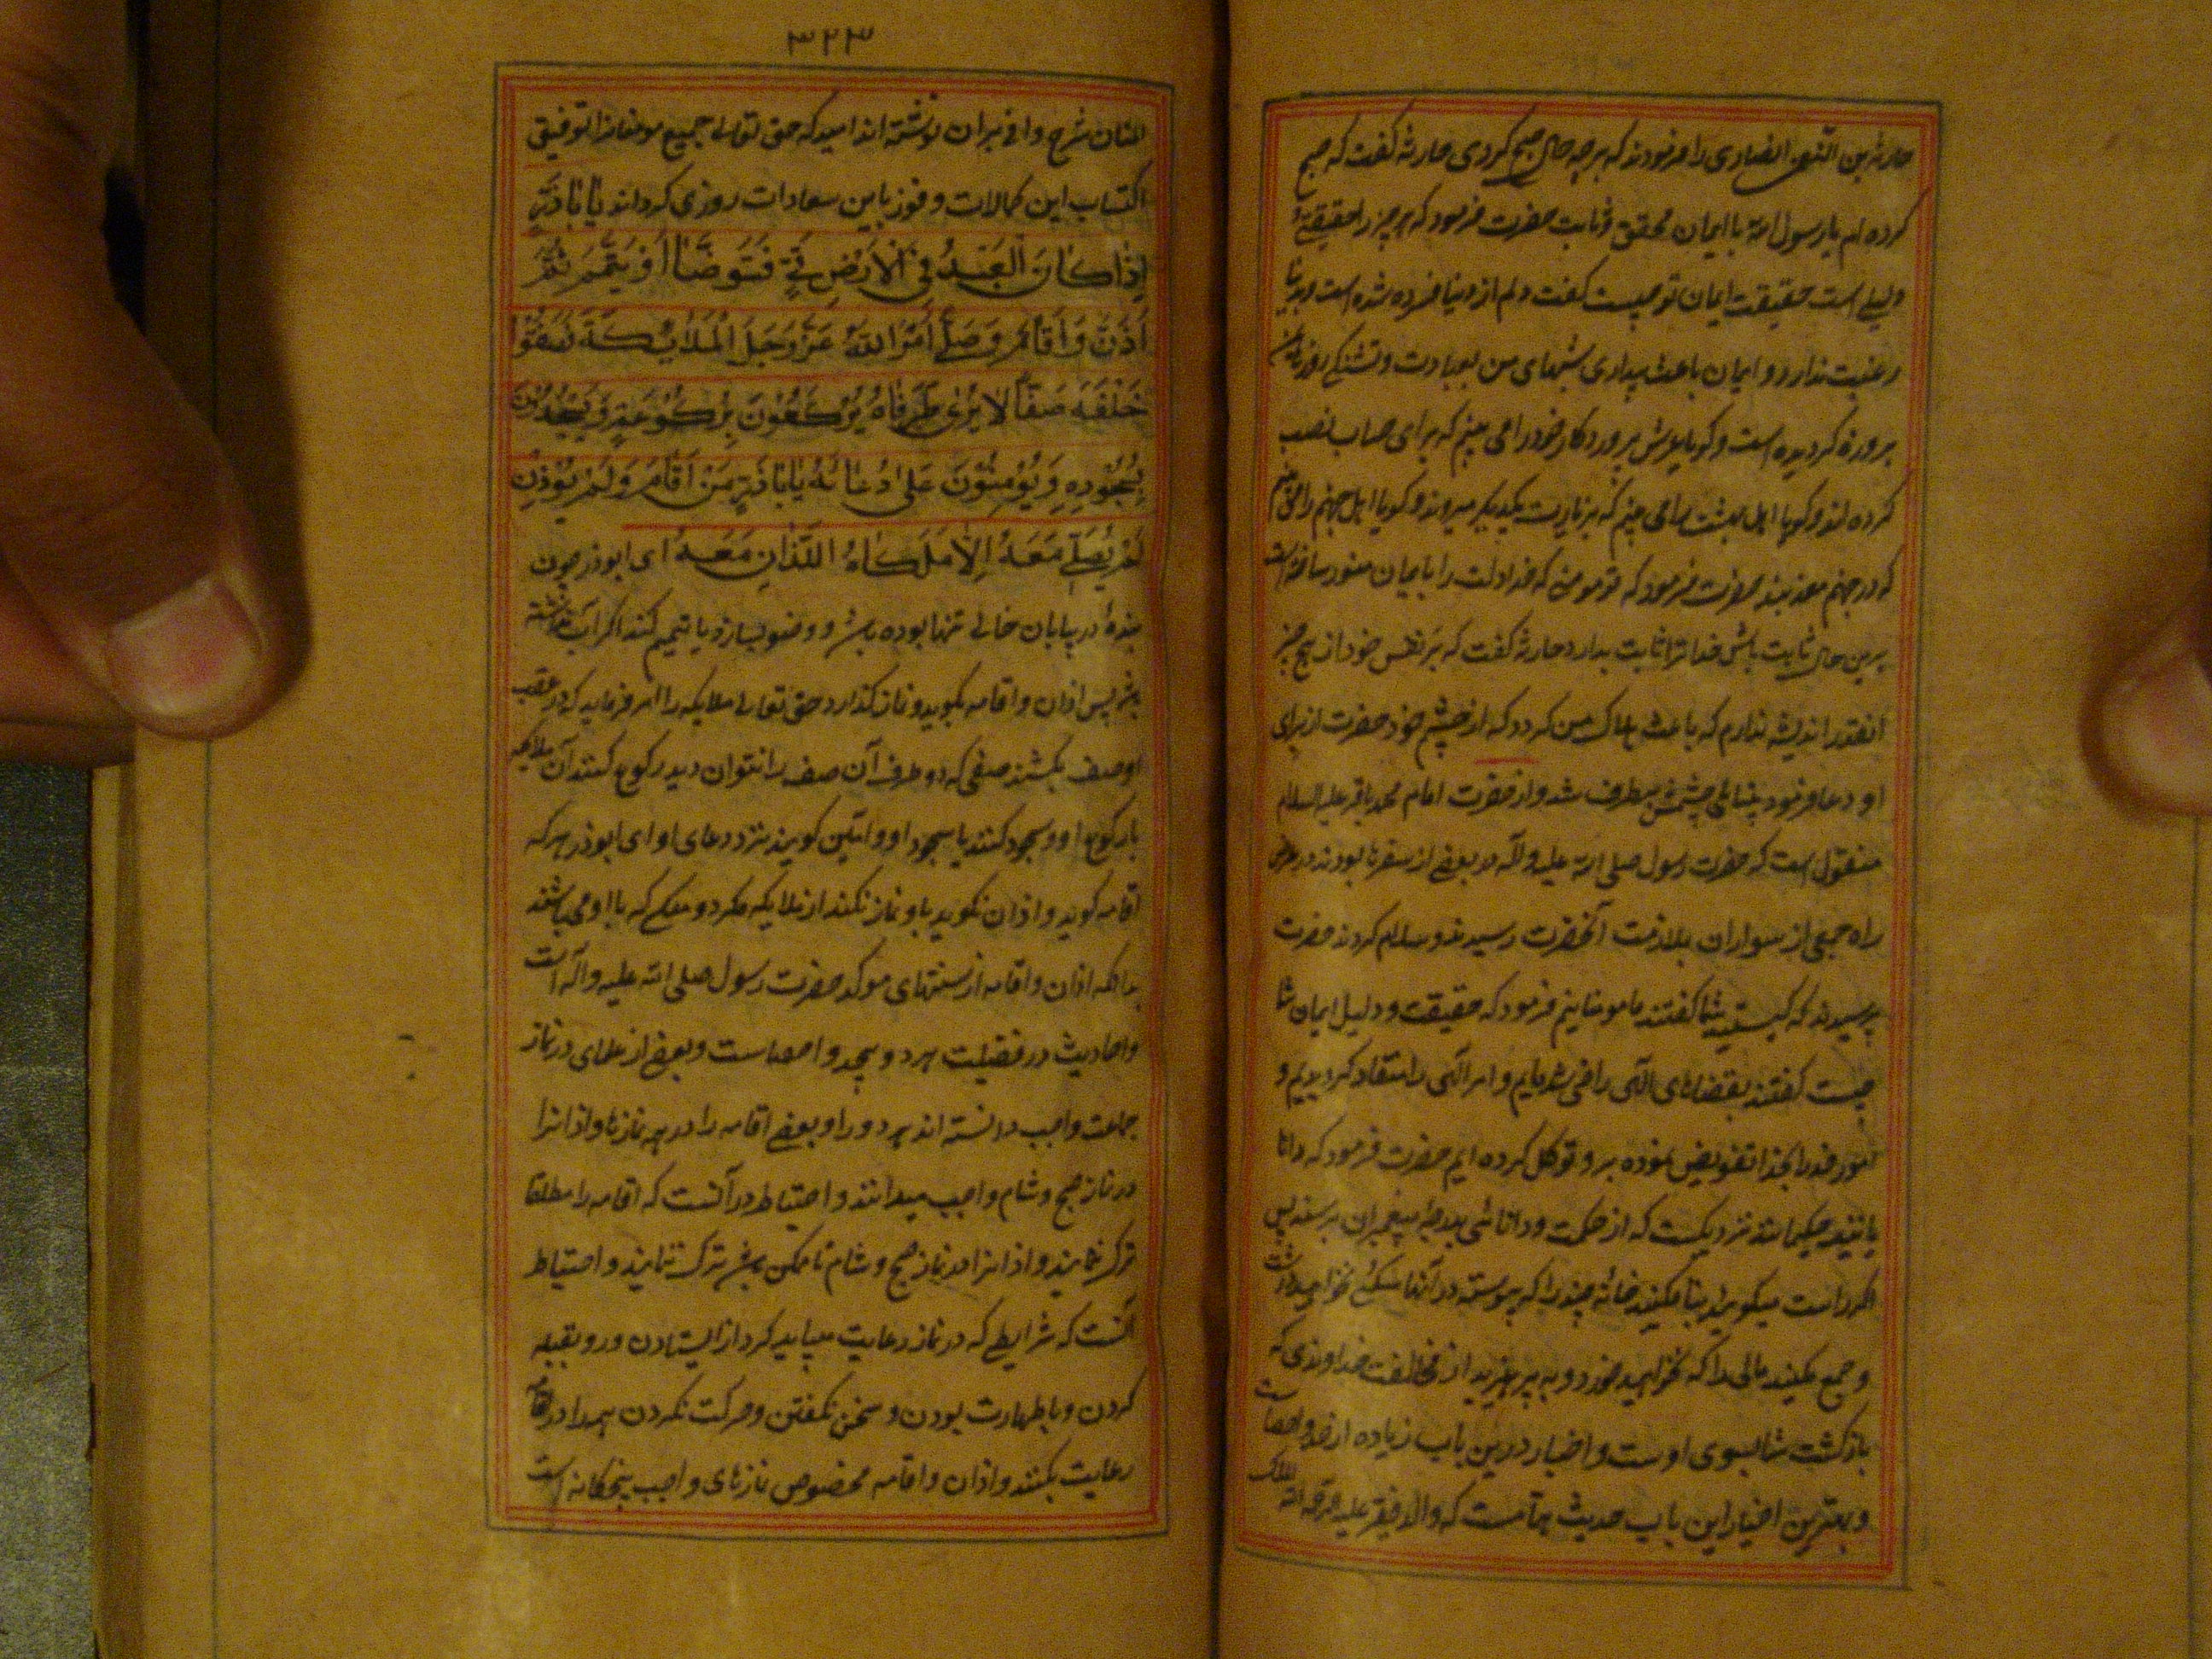 حارثه بن النعمان انصاری را فرمودند که بر چه حال صبح کردی حارثه گفت که صبح
کرده ام یا رسول الله با ایمان محقق و ثابت حضرت فرمود که هر چیز را حقیقتی و
دلیلی است حقیقت ایمان تو چیست گفت دلم از دنیا فسرده شده است و بدنیا
رغبت ندارد و ایمان باعث بیداری شبهای من بعبادت و تشنگی روزهای من
بروزه گردیده است و گویا بعرش پروردگار خود را می بینم که برای حساب نصب
کرده اند و گویا اهل بهشت را می بینم که بزیارت یکدیگر میروند و گویا اهل جهنم را می بینم
که در جهنم معذبند حضرت فرمود که تو مومنی که خدا دلت را بایمان منور ساخته است
برین حال ثابت باش خدا ترا ثابت بدارد حارثه گفت که بر نفس خود از هیچ چیز
آنقدر اندیشه ندارم که باعث هلاک من گردد که از چشم خود حضرت از برای
او دعا فرمود بینائی چشمش برطرف شد و از حضرت امام محمد باقر علیه السلام
منقول است که حضرت رسول صلی الله علیه وآله در بعضی از سفرها بودند در عرض
راه جمعی از سواران بملازمت آنحضرت رسیدند و سلام کردند حضرت
پرسیدند که کیستید شما گفتند ما مومنانیم فرمود که حقیقت و دلیل ایمان شما
چیست گفتند بقضاهای الهی راضی شده ایم و امر الهی را منقاد گردیدیم و
امور خود را بخدا تفویض نموده برو توکل کرده ایم حضرت فرمود که دانا
یانند حکیمانند نزدیکست که از حکمت و دانائی بدرجهٔ پیغمبران برسند پس
اگر راست میگویید بنا مکنید خانهٔ چند را که پیوسته در آنها سکنی نخواهید داشت
و جمع مکنید مالی را که نخواهید خورد و بپرهیزید از مخالفت خداوندی که
بازگشت شما بسوی اوست و اخبار درین باب زیاده از حد و احصا است
و بهترین اخبار این باب حدیث همامست که والد فقیر علیه رحمة الله الملک
۳۲۳
المنان شرح وافی بر آن نوشته اند امید که حق تعالی جمیع مومنان را توفیق
اکتساب این کمالات و فوز باین سعادات روزی گرداند یَا بَاذَرٍّ
اِذَا کَانَ الْعَبْدُ فِی الْاَرْضِ قِیٍّ فَتَوَضَّأَ اَوْ یَتَمَّمَ ثُمَّ
اَذَّنَ وَاَقَامَ وَصَلّٰی اَمَرَ اللّٰهُ عَزَّ وَجَلَّ الْمَلَائِکَةَ فَصَفُّوا
خَلْفَهُ صَفّاً لَا یُرٰی طَرَفَاهُ یَرْکَعُونَ بِرُکُوعِهِ وَیَسْجُدُونَ
بِسُجُودِهِ وَیُؤْمِنُوْنَ عَلٰی دُعَائِهِ یَا بَاذَرٍّ مَنْ اَقَامَ وَلَمْ یُؤَذِّنْ
لَمْ یُصَلِّ مَعَهُ اِلَّا مَلَکَاهُ اللَّذَانِ مَعَهُ ای ابوذر چون
بندهٔ در بیابان خالی تنها بوده باشد و وضو بسازد یا تیمم کند اگر آب نداشته
باشد پس اذان و اقامه بگوید و نماز گذارد حق تعالی ملایکه را امر فرماید که در عقب
او صف بکشند صفی که دو طرف آن صف را نتوان دید رکوع کنند آن ملایکه
با رکوع او و سجود کنند با سجود او و آمین گویند نزد دعای او ای ابوذر هر که
اقامه گوید و اذان نگوید با او نماز نکنند از ملایکه مگر دو ملکی که با او می باشند
بدانکه اذان و اقامه از سنتهای موکد حضرت رسول صلی الله علیه وآله است
و احادیث در فضیلت هر دو بیحد و احصاست و بعضی از علمای در نماز
جماعت واجب دانسته اند هر دو را و بعضی اقامه را در همه نمازها و اذانرا
در نماز صبح و شام واجب میدانند و احتیاط در آنست که اقامه را مطلقا
ترک ننمایند و اذانرا در نماز صبح و شام تا ممکن باشد ترک ننمایند و احتیاط
آنست که شرایطی که در نماز رعایت میباید کرد از ایستادن و رو بقبله
کردن و با طهارت بودن و سخن نگفتن و حرکت نکردن همه را در اقامه
رعایت بکنند و اذان و اقامه مخصوص نمازهای واجب پنجگانه است